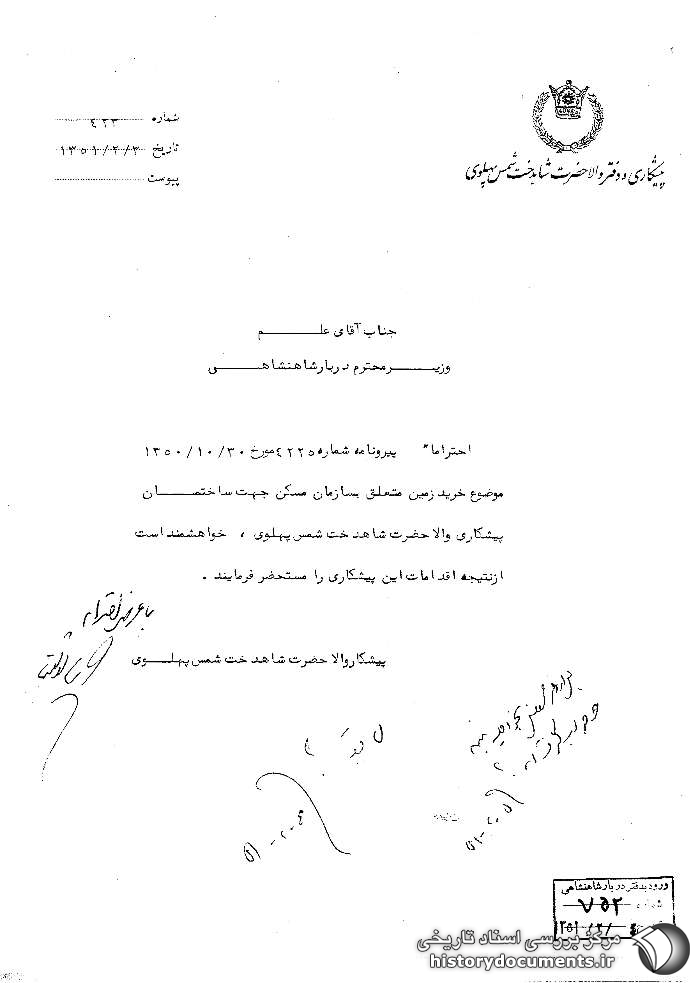 پیشکاری و دفتر والاحضرت شاهدخت شمس پهلوی
شماره ۴۲۳
تاریخ ۱۳۵۱/۲/۳
پیوست
جناب آقای علم
وزیر محترم دربار شاهنشاهی
احتراماً پیرو نامه شماره ۴۲۲۵ مورخ ۱۳۵۰/۱۰/۳۰
موضوع خرید زمین متعلق بسازمان مسکن جهت ساختمان
پیشکاری والاحضرت شاهدخت شمس پهلوی ، خواهشمند است
از نتیجه اقدامات این پیشکاری را مستحضر فرمایند .
با عرض احترام
پیشکار والاحضرت شاهدخت شمس پهلوی
ورود بدفتر دربار شاهنشاهی
شماره ۷۵۲
۱۳۵۱/۲/۴
مرکز بررسی اسناد تاریخی
historydocuments.ir